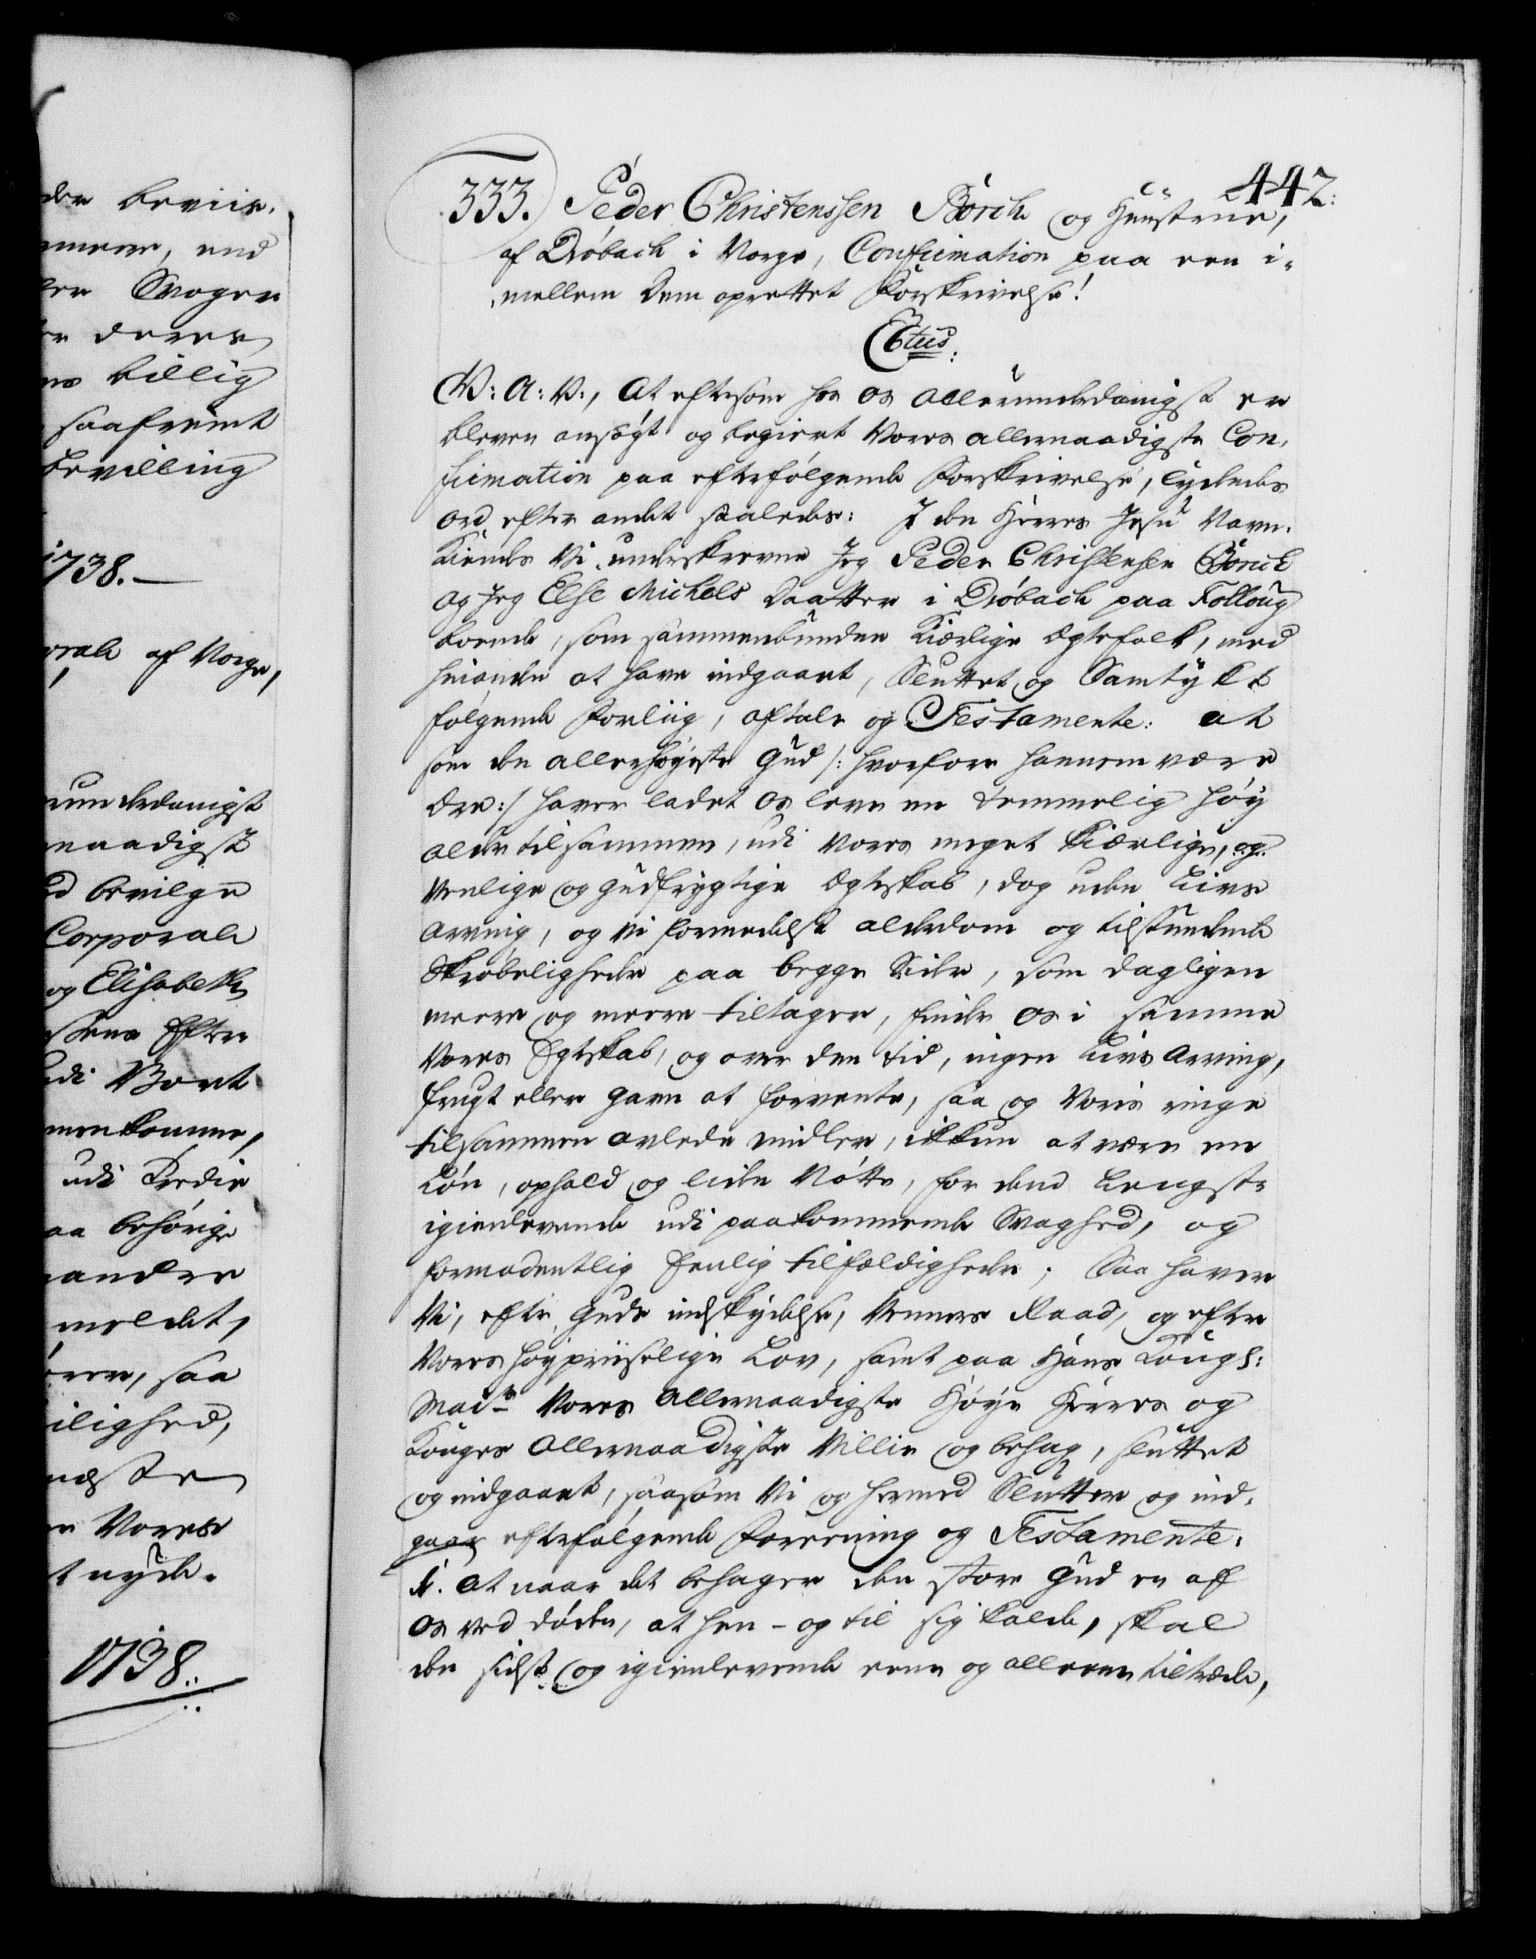 der beviis.
meere, end
Svoger
deres
billig
saafremt
bevilling
1738.
af Norge,
underdanigst
naadigst
bevilge
Corporale
og Elisabeth
Efter
udi Bort
menkomme,
udi Tredie
paa behørige
andre
meldet,
saa
ilighed,
næste
Vores
nyde.
1738.
442.
333. Peder Christenssen Borch og Hustrue,
af Drøbach i Norge, Confirmation paa een i-
mellem dem oprettet Forskrivelse!
C6tus.
V: A: V:, At eftersom for os allerunderdanigst er
bleven ansøgt og begiert Vores allernaadigste Con-
firmation paa efterfølgende Forskrivelse, lydendes
ord efter andet saaledes: I den Herres Jesu Navn.
Kiendes Vi underskrevne Jeg Peder Christensen Borch
og Jeg Else Michels Daatter i Drøbach paa Folloug
boende, som sammenbunden kierlige Ægtefolk, med
hinanden at have indgaaet, Sluttet og Samtykt
følgende Forliig, aftale og Testamente: at
som den allerhøyeste Gud /: hvorfore hannem være
ære :/ haver ladet os leve en temmelig høy
alder tilsammen, udi Vores meget kierlige, og
venlige og gudfrygtige Ægteskab, dog uden Livs
Arving, og Vi formedelst alderdom og tilstundende
Skrøbeligheder paa begge Sider, som dagligen
meere og meere tiltager, finder os i samme
Vores Egteskab, og over den tid, ingen Livs Arving,
frugt eller gavn at forvente, saa og Voris ringe
tilsammen avlede midler, ikkun at være en
Løn, ophold og liden Nøtte, for dend Lengst
igienlevende udi paakommende Svaghed, og
formodentlig Eenlig tilfældigheder; Saa haver
Vi, efter Guds indskydelse, Venners Raad, og efter
Vores høypriiselige Lov, samt paa Hans Kongl:
Maits Vores Allernaadigste Høye Herres og
Konges Allernaadigste Villie og behag, sluttet
og indgaaet, saasom Vi og hermed Slutter og ind-
gaar efterfølgende Foreening og Testamente:
1. At naar det behager den store Gud en af
os ved døden, at hen- og til sig kalde, skal
den sidst og igienlevende eene og alleene tiltræde,